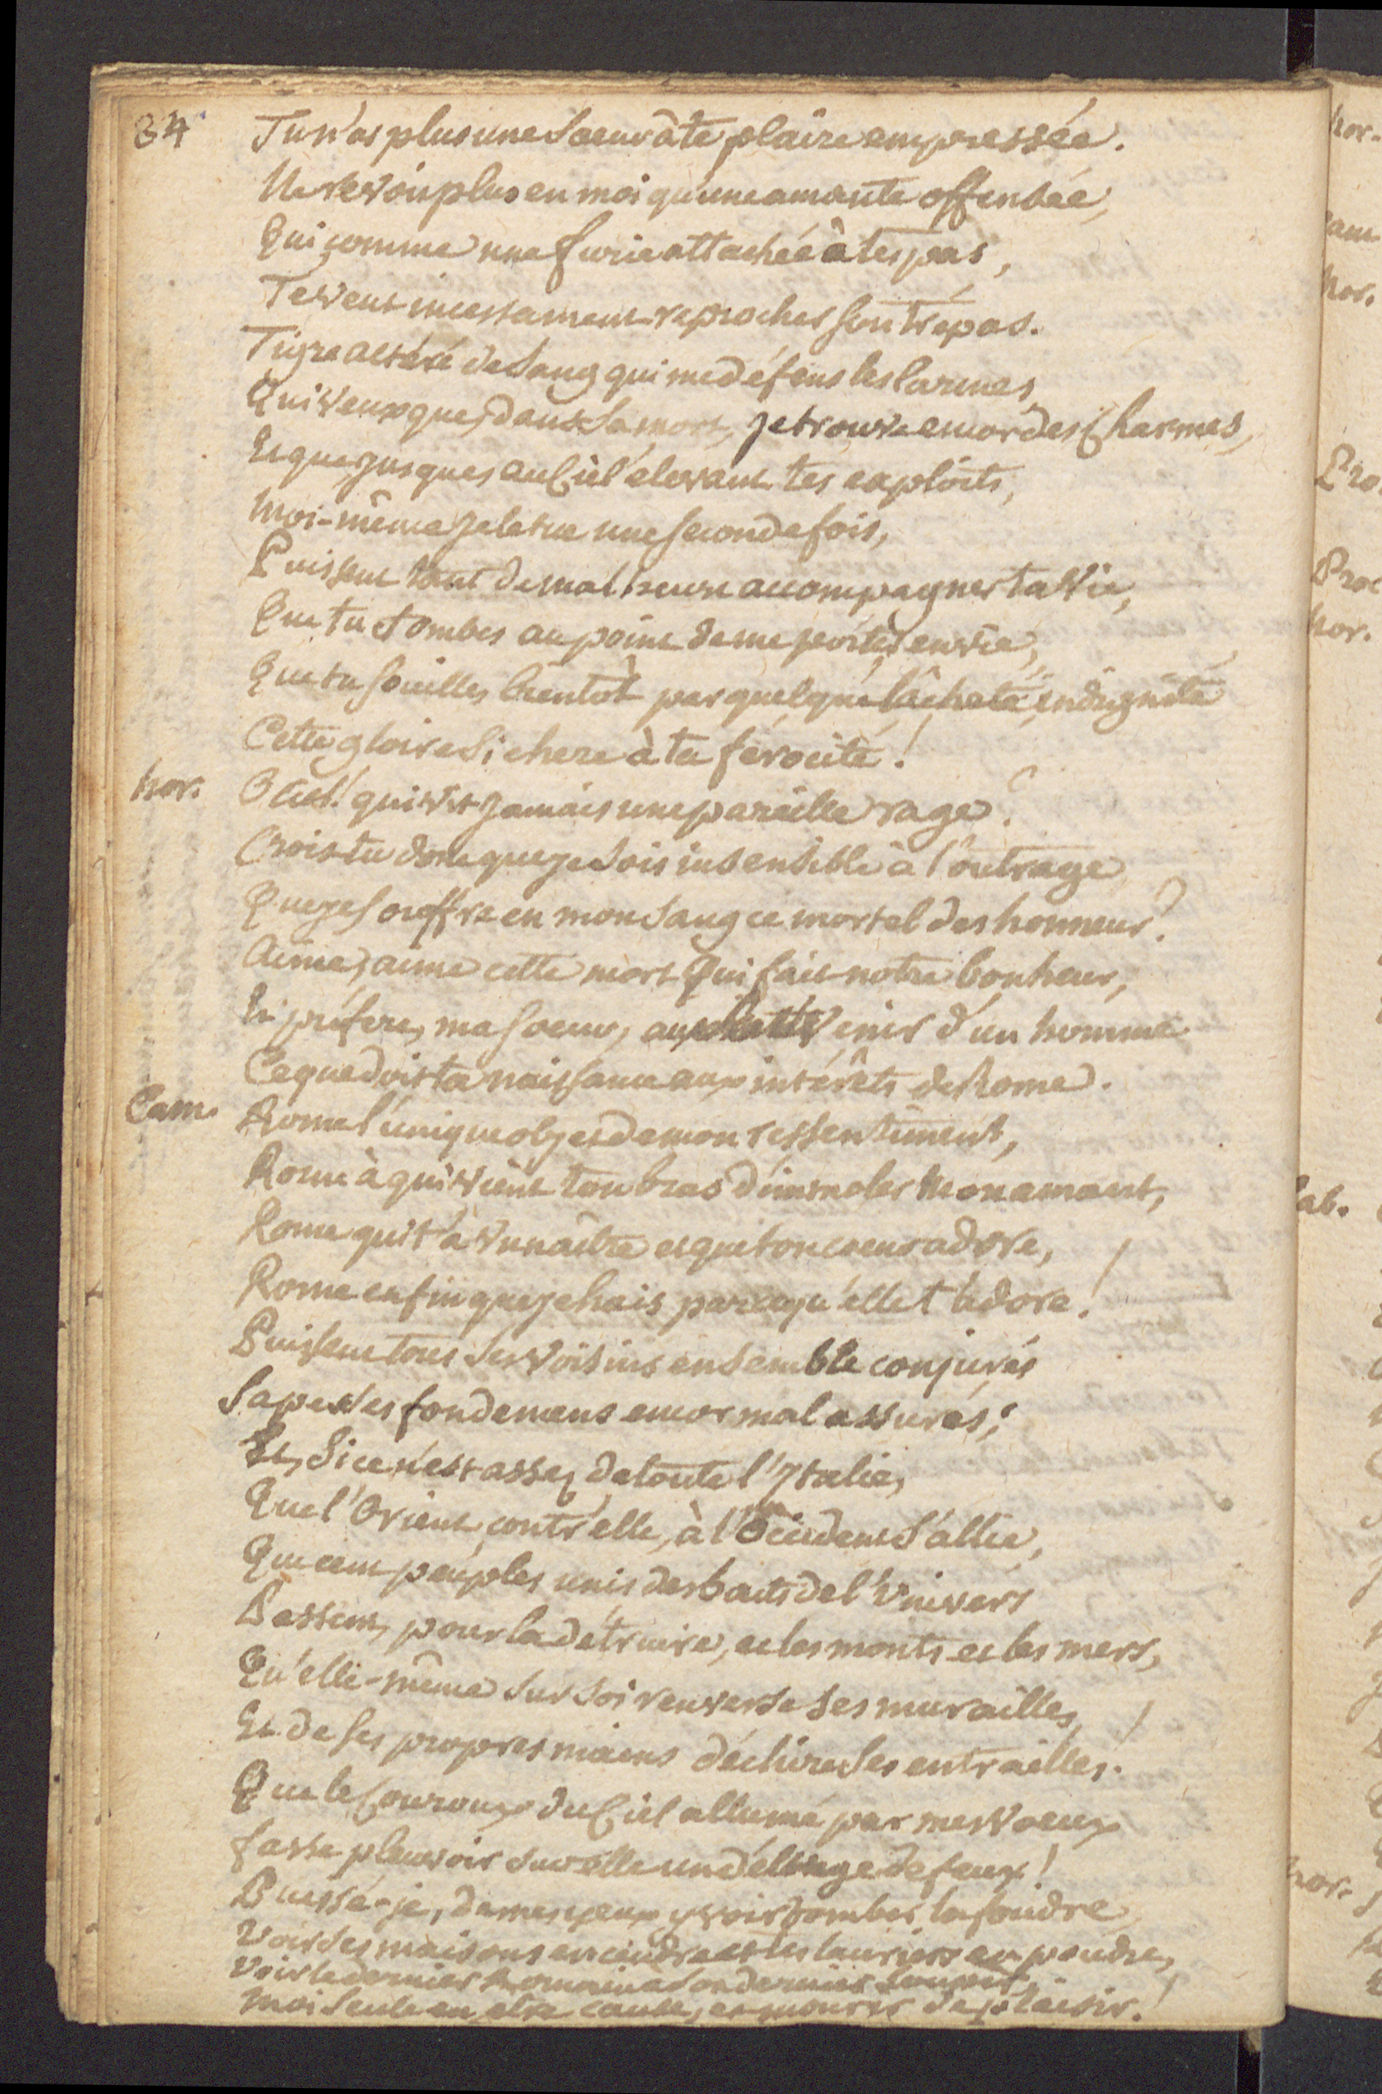 84
Tu n'as plus une Soeur à te plaire empressée.
Ne revois plus en moi qu'une amante offensée,
Qui comme une furie attachée à tes pas,
Te veut incessament reprocher son trépas.
Tigre altéré de Sang qui me défens les larmes
Qui veux que, dans Sa mort, je trouve encor des Charmes,
Et que jusques au Ciel élevant tes exploits,
Moi-même je le tue une seconde fois,
Puissent tant de malheurs accompagner ta Vie,
Que tu tombes au point de me porter envie,
Que tu souilles bientôt par quelque lâcheté indignité
Cette gloire Si chere à ta férocité!
hor. O Ciel! qui vit jamais une pareille rage?
Crois-tu donc que je Sois insensible à l'outrage
Que je souffre en mon Sang ce mortel deshonneur?
Aime, aime cette mort Qui fait notre bonheur,
Et préfere, ma soeur, au Souvenir d'un homme
Ce que doit ta naissance aux intérêts de Rome.
Cam. Rome l'unique objet de mon ressentiment,
Rome à qui vient ton bras d'immoler Mon amant,
Rome qui t'a vu naître et que ton coeur adore,
Rome enfin que je hais parce qu'elle t'adore!
Puissent tous Ses Voisins ensemble conjurés
Saper Ses fondemens encor mal assurés;
Et, Si ce n'est assez de toute l'Italie,
Que l'Orient, contr'elle, à l'Occident S'allie,
Que cent peuples unis des bouts de l'Univers
Passent, pour la détruire, et les monts et les mers,
Qu'elle-même Sur Soi renverse Ses murailles,
Et de Ses propres mains déchire Ses entrailles!
Que le Couroux du Ciel allumé par mes Voeux
fasse pleuvoir Sur elle un déluge de feux!
Puissé-je, de mes yeux y voir tomber la foudre
Voir Ses maisons en cendre et tes lauriers en poudre,
Voir le dernier Romain à Son dernier Soupir,
Moi Seule en etre cause, et mourir de plaisir!
hor.
Cam
hor.
hor.
hor.